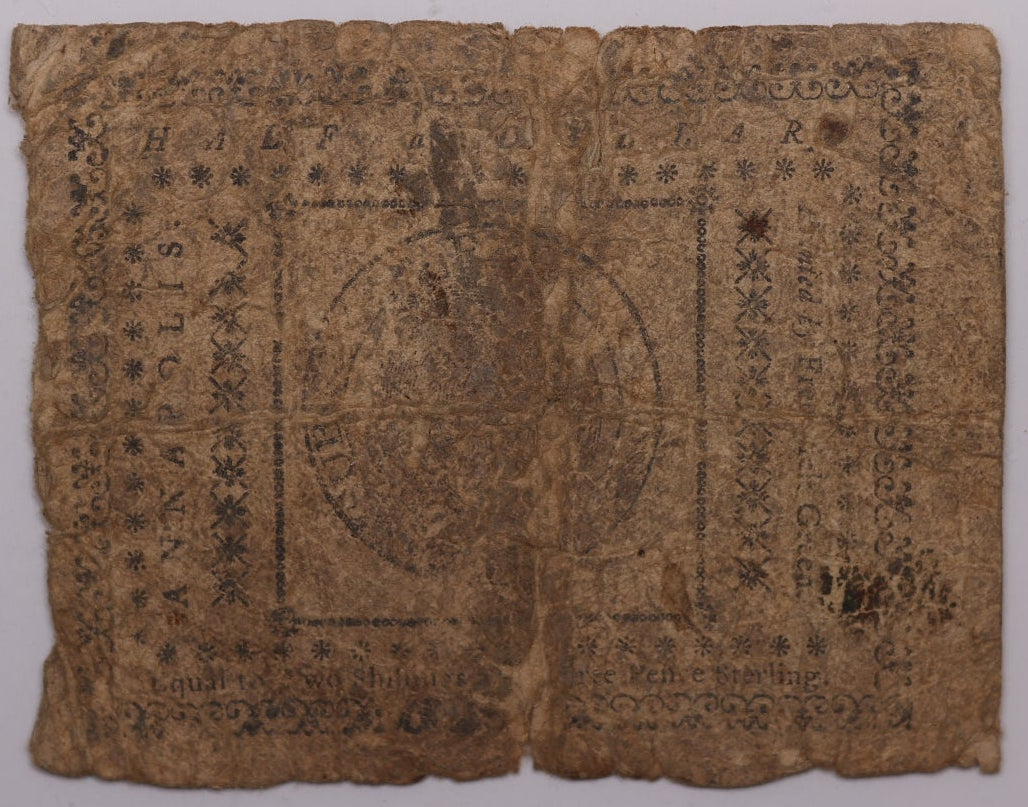 HALF a DOLLAR
ANNAPOLIS.
Printed by Frederick Green.
Equal to Two Shillings Three Pence Sterling.